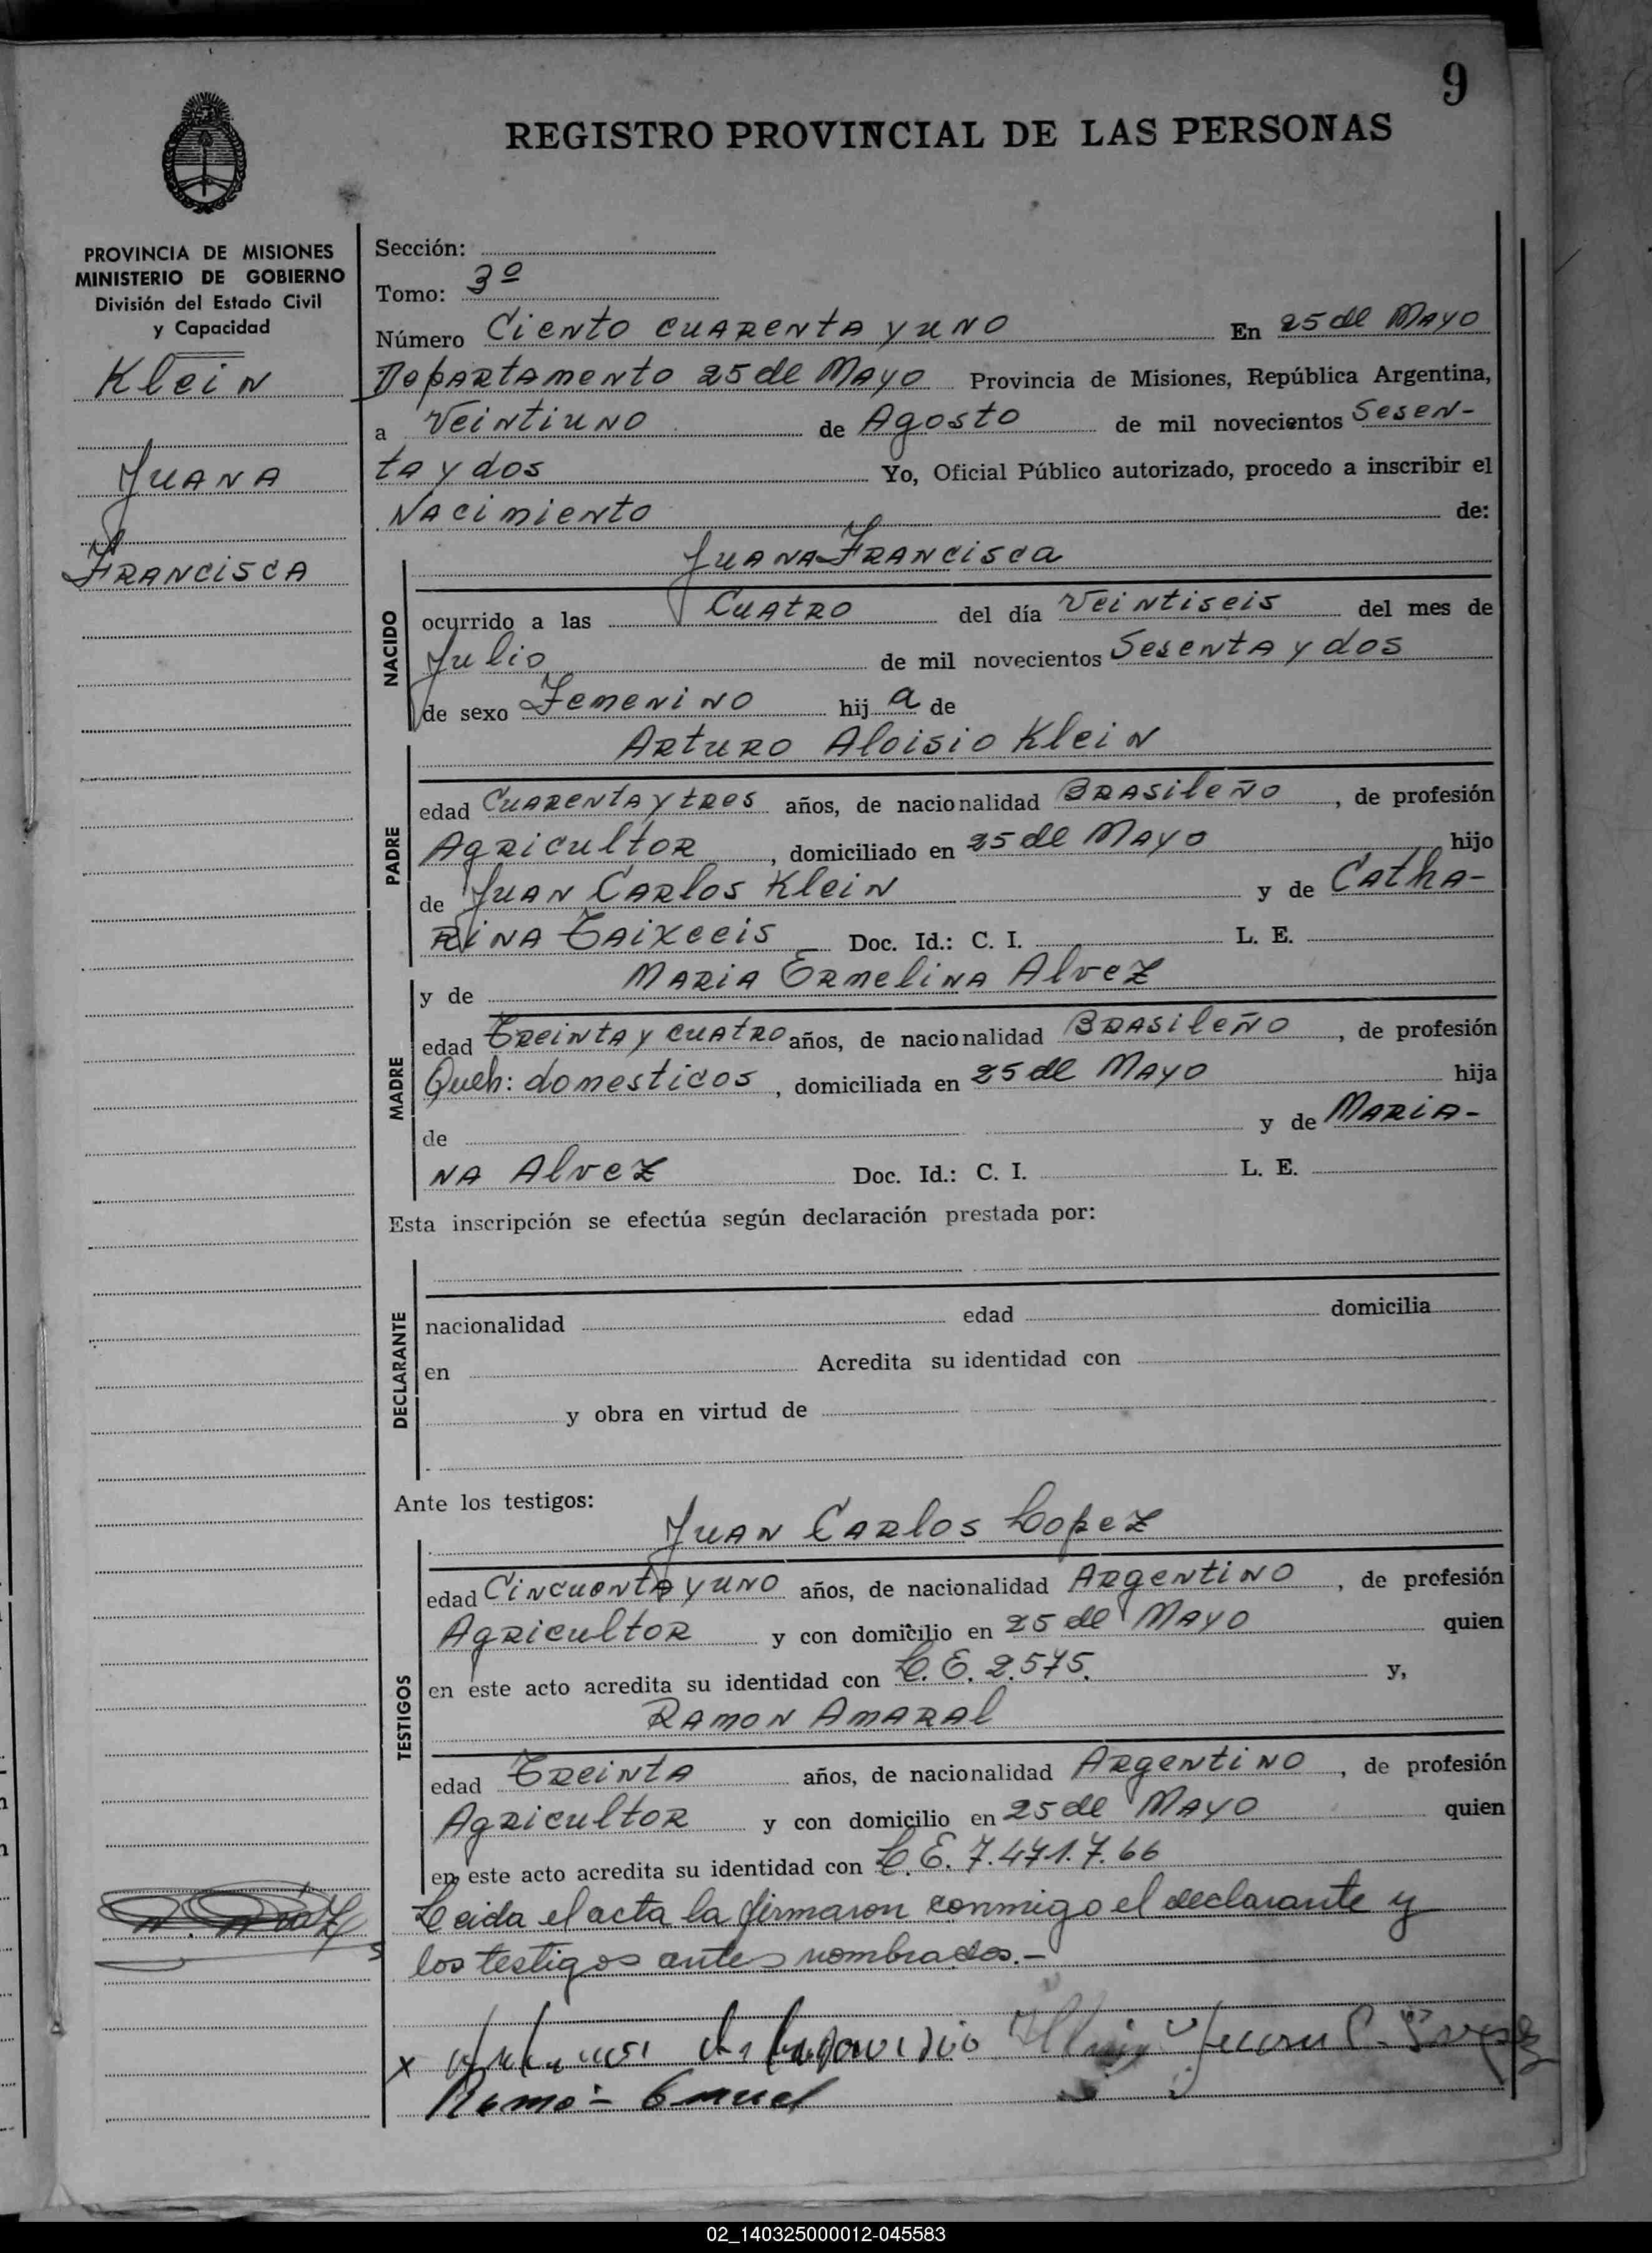 9
REGISTRO PROVINCIAL DE LAS PERSONAS
PROVINCIA DE MISIONES
MINISTERIO DE GOBIERNO
División del Estado Civil
y Capacidad
Klein
Juana
Francisca
Sección:
Tomo: 3º
Número Ciento cuarenta y uno En 25 de Mayo
Departamento 25 de Mayo Provincia de Misiones, República Argentina,
a Veintiuno de Agosto de mil novecientos Sesen-
ta y dos Yo, Oficial Público autorizado, procedo a inscribir el
Nacimiento de:
Juana Francisca
NACIDO
ocurrido a las Cuatro del día Veintiseis del mes de
Julio de mil novecientos Sesenta y dos
de sexo Femenino hij a de
Arturo Aloisio Klein
PADRE
edad Cuarenta y tres años, de nacionalidad Brasileño, de profesión
Agricultor, domiciliado en 25 de Mayo hijo
de Juan Carlos Klein y de Catha-
rina Taixceis Doc. Id.: C. I. L. E.
y de Maria Ermelina Alvez
MADRE
edad Treinta y cuatro años, de nacionalidad Brasileño, de profesión
Queh: domesticos, domiciliada en 25 de Mayo hija
de y de Maria-
na Alvez Doc. Id.: C. I. L. E.
Esta inscripción se efectúa según declaración prestada por:
DECLARANTE
nacionalidad edad domicilia
en Acredita su identidad con
y obra en virtud de
Ante los testigos:
Juan Carlos Lopez
TESTIGOS
edad Cincuenta y uno años, de nacionalidad Argentino, de profesión
Agricultor y con domicilio en 25 de Mayo quien
en este acto acredita su identidad con L. E. 2.575. y,
Ramon Amaral
edad Treinta años, de nacionalidad Argentino, de profesión
Agricultor y con domicilio en 25 de Mayo quien
en este acto acredita su identidad con L. E. 7.471.7.66
Leida el acta la firmaron conmigo el declarante y
los testigos antes nombrados.-
x
02_140325000012-045583